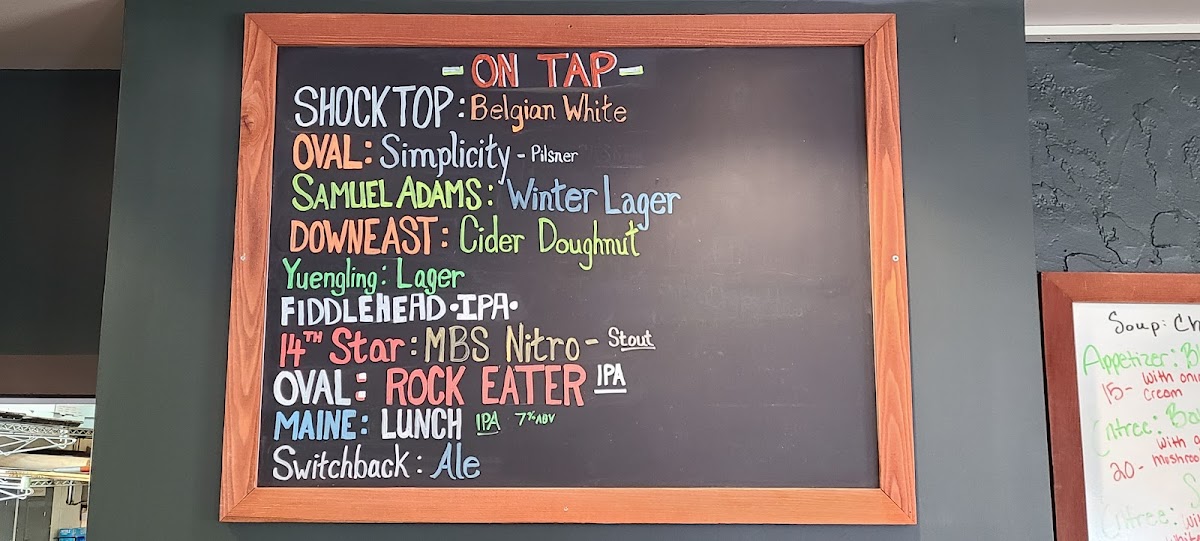 - ON TAP -
SHOCK TOP: Belgian White
OVAL: Simplicity - Pilsner
SAMUEL ADAMS: Winter Lager
DOWNEAST: Cider Doughnut
Yuengling: Lager
FIDDLEHEAD • IPA •
14TH Star: MBS Nitro - Stout
OVAL: ROCK EATER IPA
MAINE: LUNCH IPA 7% ABV
Switchback: Ale
Soup:
Appetizer:
15- With
Cream
Entree:
With
20-
Entree: